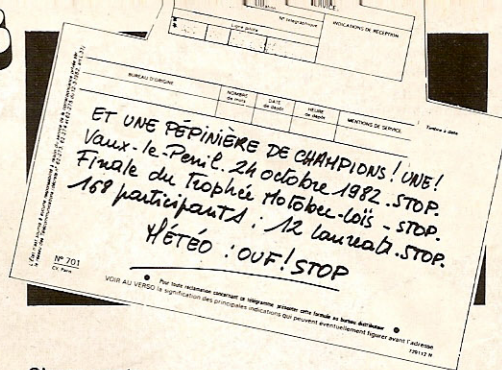 N° télégraphique
INDICATIONS DE RÉCEPTION
Ligne pilote
BUREAU D'ORIGINE
NOMBRE de mots
DATE de dépôt
HEURE de dépôt
MENTIONS DE SERVICE
Timbre à date
ET UNE PÉPINIÈRE DE CHAMPIONS ! UNE !
Vaux-le-Penil. 24 octobre 1982. STOP.
Finale du Trophée Motobec-Loïs - STOP.
168 participants : 12 laureats. STOP.
MÉTÉO : OUF ! STOP
N° 701
CV. Paris
Pour toute réclamation concernant le télégramme, présenter cette formule au bureau distributeur
VOIR AU VERSO la signification des principales indications qui peuvent éventuellement figurer avant l'adresse